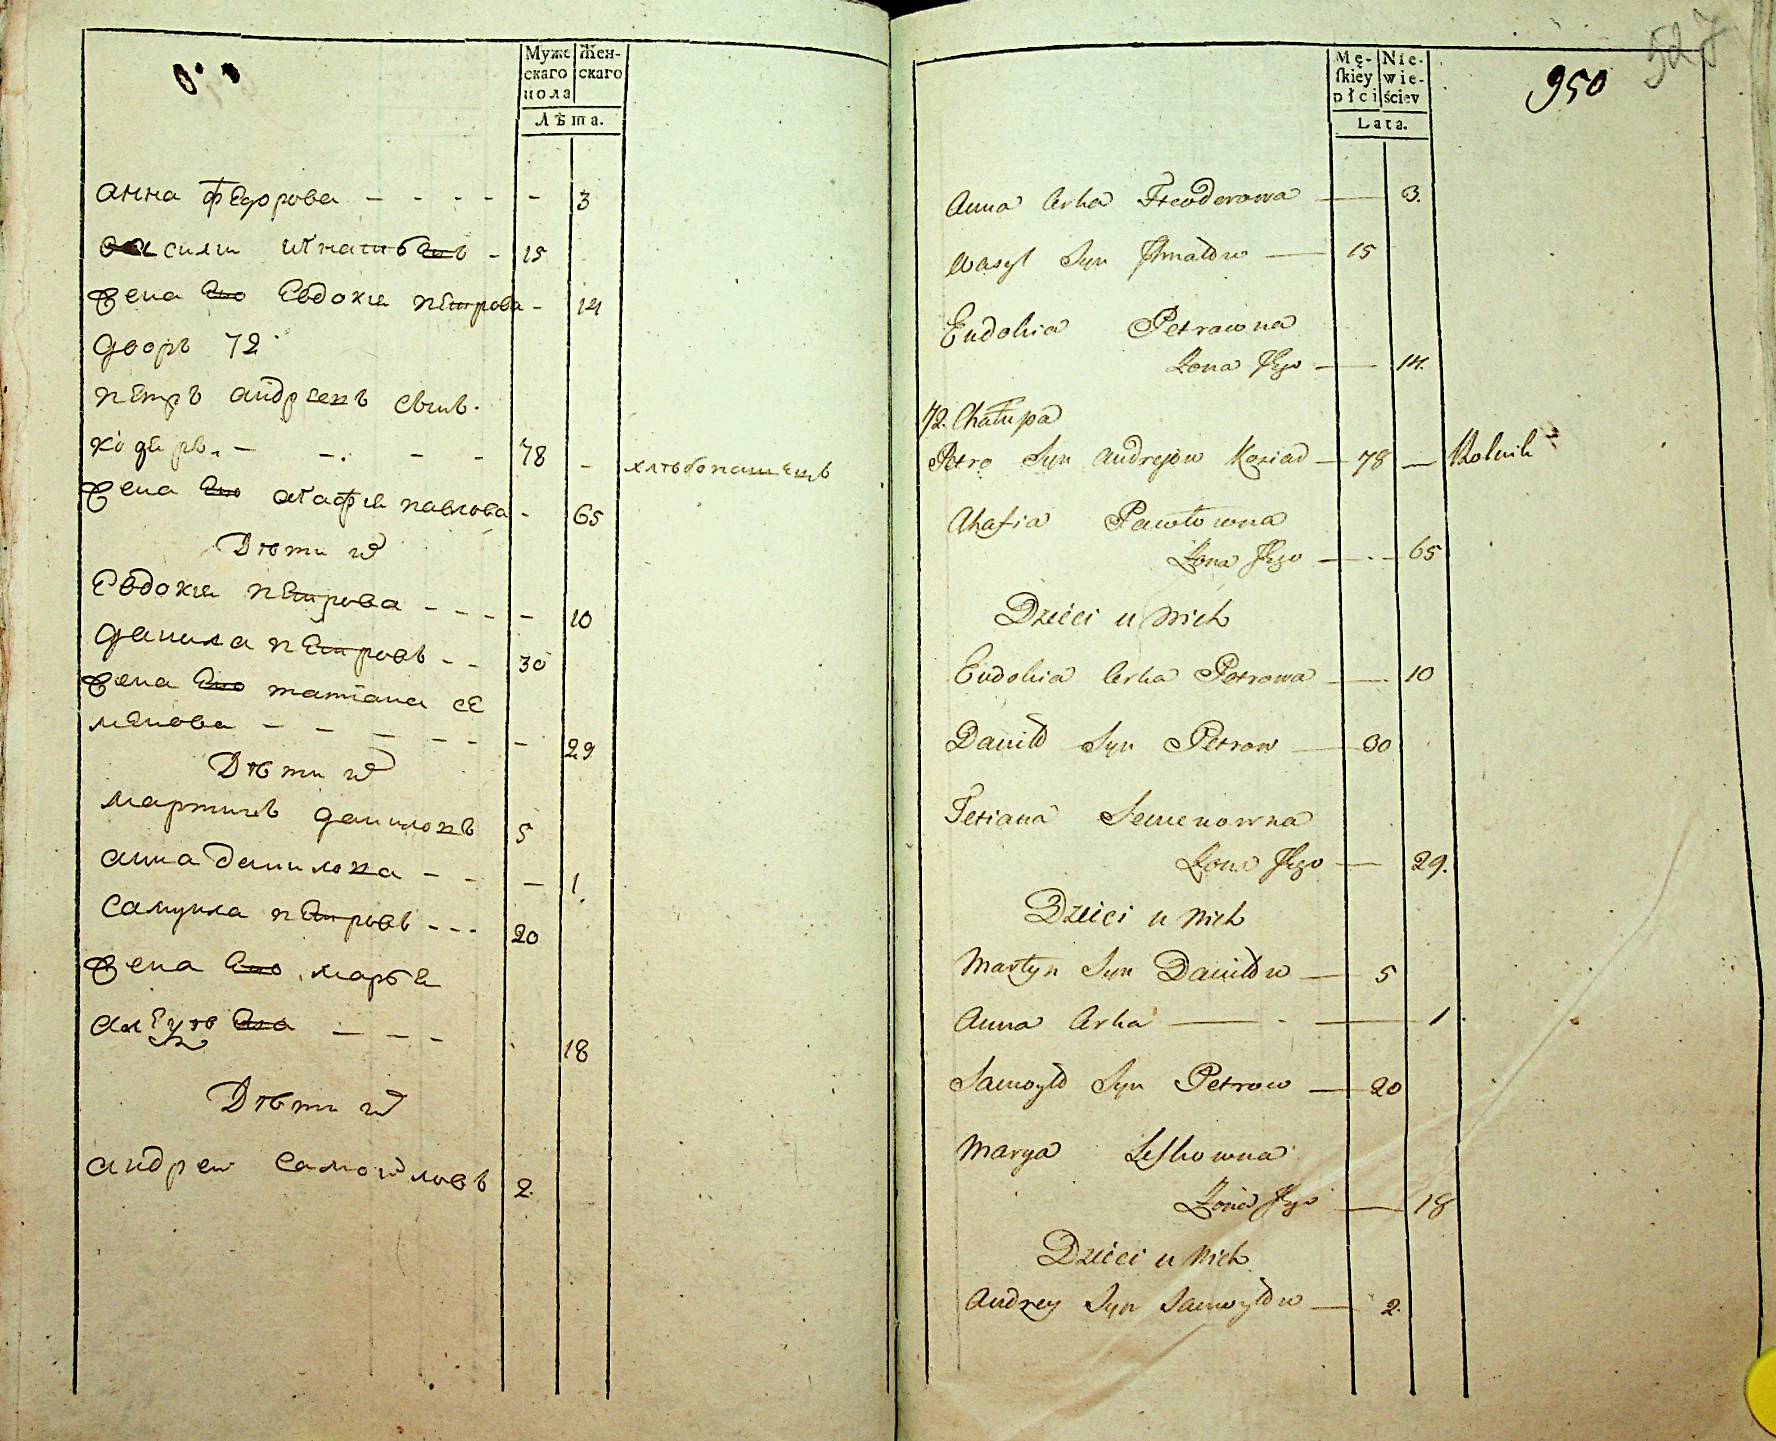 Муже Жен-
скаго скаго
пола
Лѣта.
анна федорова - - - - - 3
василии игнатьевъ - 15
жена ево Евдокия петрова - 14
дворъ 72
петръ андреевъ
78 - хлѣбопашецъ
жена ево агафия павлова - 65
Дѣти их
Евдокия петрова - - - - 10
данила петровъ - - 30
жена ево татіана се
менова - - - - - - 29
Дѣти их
мартинъ даниловъ 5
анна данилова - - - 1.
самуила петровъ - - - 20
жена ево марья
- - - 18
Дѣти их
андреи самоиловъ 2.
527
950
Mę- Nie-
skiey wie-
płci ściey
Lata.
Anna Crka Fteodorowa — 3.
Wasyl Syn Ihnatów — 15
Eudokia Petrowna
Żona Jego — 14.
72. Chałupa
Petro Syn Andrejów — 78 — Rolnik
Ahafia Pawłowna
Żona Jego — 65
Dzieci u Nich
Eudokia Crka Petrowa — 10
Daniło Syn Petrow — 30
Tetiana Semenowna
Żona Jego — 29.
Dzieci u Nich
Martyn Syn Daniłow — 5
Anna Crka — 1
Samoyło Syn Petrow — 20
Marya Leskowna
Żona Jego — 18
Dzieci u Nich
Andrey Syn Samoyłow — 2.